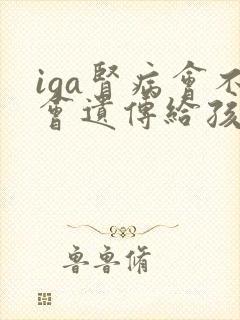 iga腎病會不
會遺傳給孩
魯魯脩